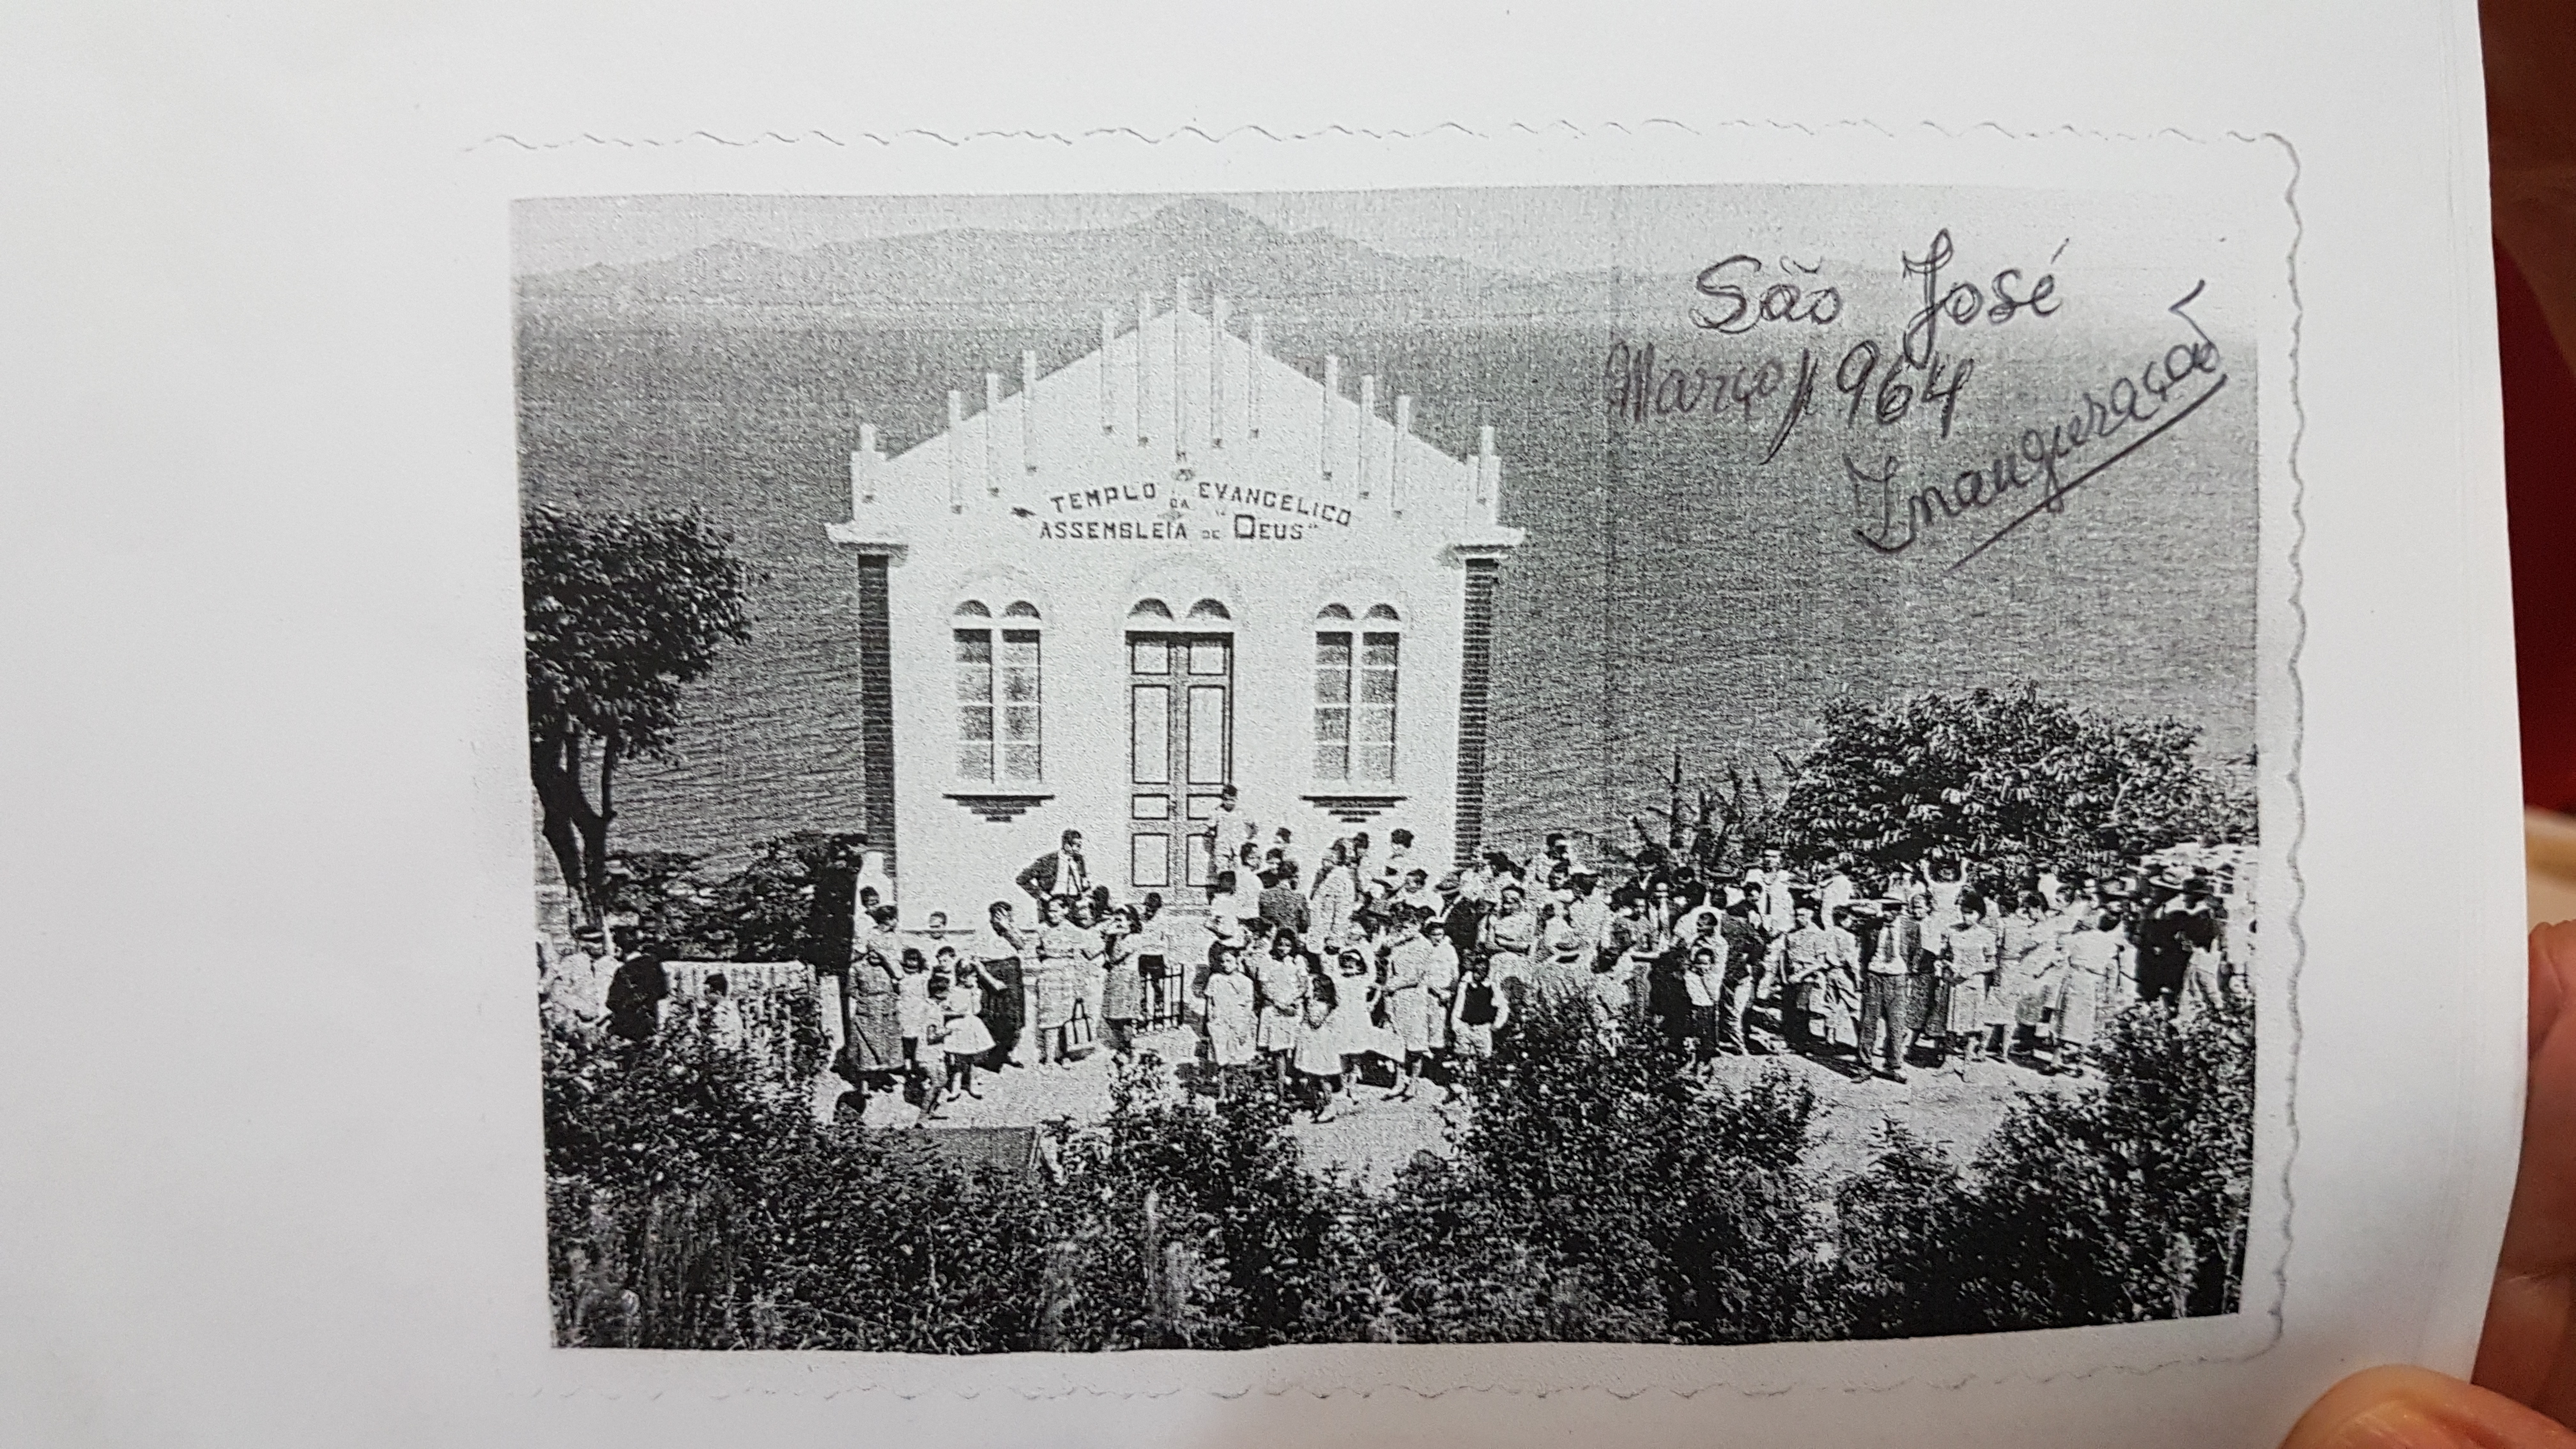 São José
Março/1964
Inauguração
TEMPLO EVANGELICO
DA
ASSEMBLEIA DE "DEUS"